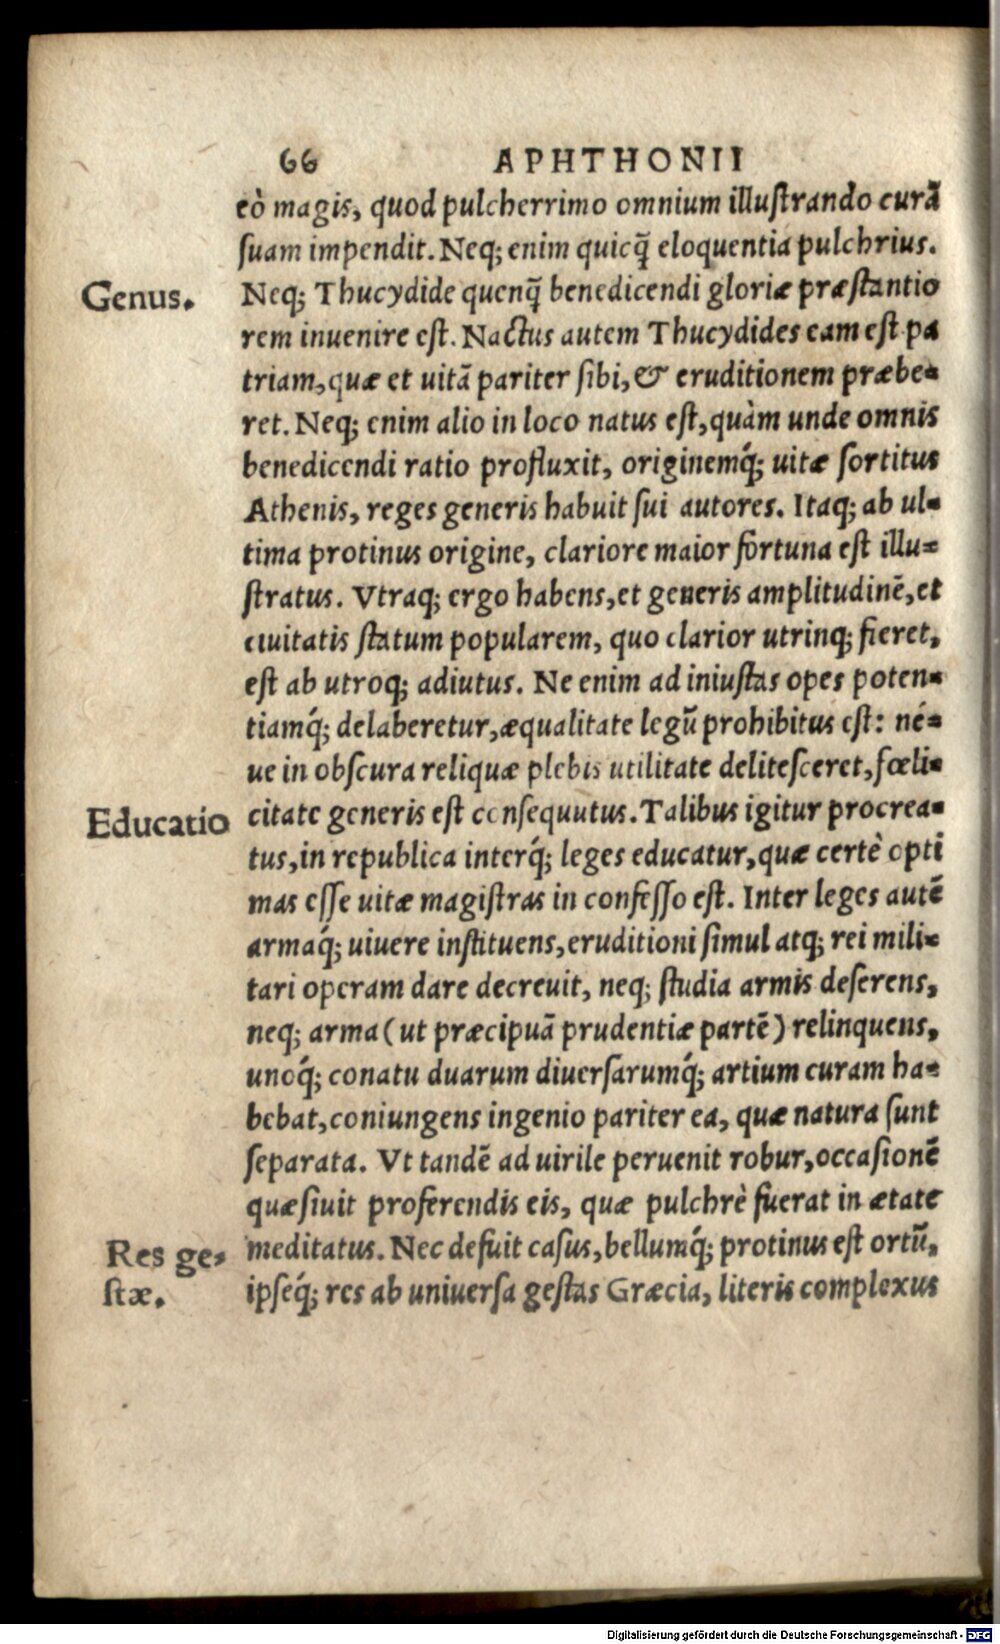 66 APHTHONII
eò magis, quod pulcherrimo omnium illuſtrando curā
ſuam impendit. Neq; enim quicq̃ eloquentia pulchrius.
Genus.
Neq; Thucydide quenq̃ benedicendi gloriæ præſtantio
rem inuenire eſt. Nactus autem Thucydides eam eſt pa
triam, quæ et uitā pariter ſibi, & eruditionem præbe-
ret. Neq; enim alio in loco natus eſt, quàm unde omnis
benedicendi ratio profluxit, originemq́; uitæ ſortitus
Athenis, reges generis habuit ſui autores. Itaq; ab ul-
tima protinus origine, clariore maior fortuna eſt illu-
ſtratus. Vtraq; ergo habens, et generis amplitudinē, et
ciuitatis ſtatum popularem, quo clarior utrinq; fieret,
eſt ab utroq; adiutus. Ne enim ad iniuſtas opes poten-
tiamq́; delaberetur, æqualitate legū prohibitus eſt: né-
ue in obſcura reliquæ plebis utilitate deliteſceret, fœli-
Educatio
citate generis eſt conſequutus. Talibus igitur procrea-
tus, in republica interq́; leges educatur, quæ certè opti
mas eſſe uitæ magiſtras in confeſſo eſt. Inter leges autē
armaq́; uiuere inſtituens, eruditioni ſimul atq; rei mili-
tari operam dare decreuit, neq; ſtudia armis deſerens,
neq; arma (ut præcipuā prudentiæ partē) relinquens,
unoq́; conatu duarum diuerſarumq́; artium curam ha-
bebat, coniungens ingenio pariter ea, quæ natura ſunt
ſeparata. Vt tandē ad uirile peruenit robur, occaſionē
quæſiuit proferendis eis, quæ pulchrè fuerat in ætate
Res ge-
ſtæ.
meditatus. Nec defuit caſus, bellumq́; protinus eſt ortū,
ipſeq́; res ab uniuerſa geſtas Græcia, literis complexus
Digitalisierung gefördert durch die Deutsche Forschungsgemeinschaft - DFG